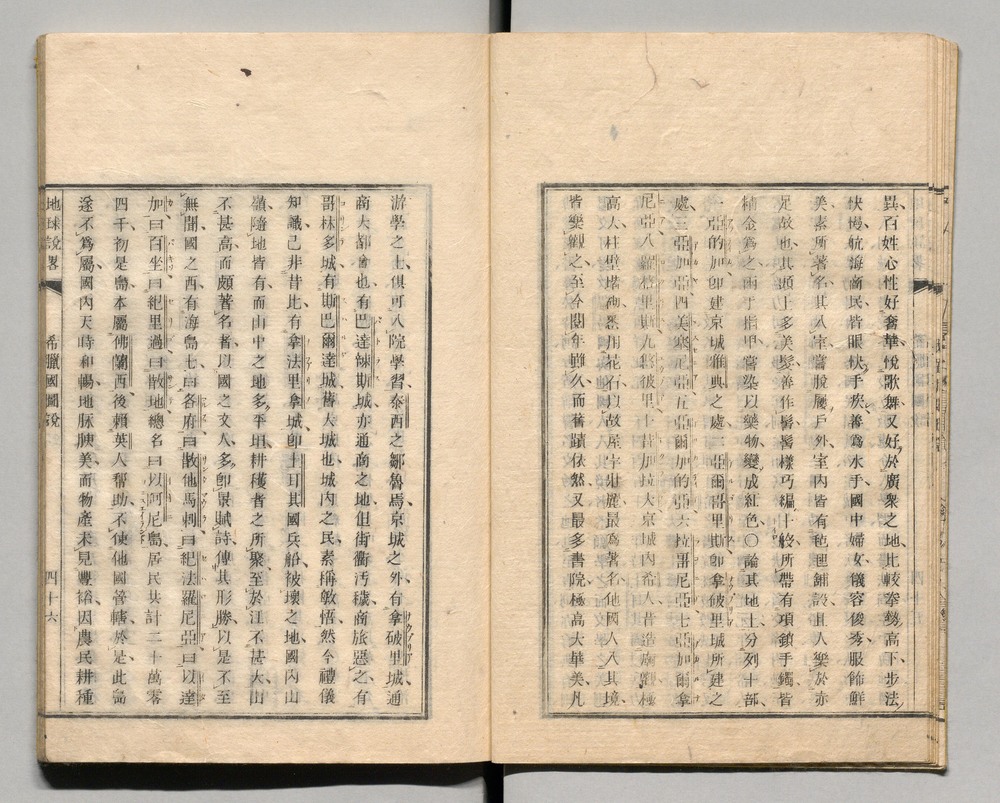 異百姓心性好奢華悅歌舞又好於廣衆之地比較拳勢高下步法
快慢航海商民皆眼快手疾善爲水手國中婦女儀容俊秀服飾鮮
美素所著名其入室嘗脫屨戶外室內皆有毡毯鋪設且人樂於赤
足故也其頭上多美髮善作鬅髻樣巧編十餘所帶有項鎖手鐲皆
精金爲之兩手指甲嘗染以藥物變成紅色〇論其地土分列十部
一亞的加卽建京城雅典之處二亞爾哥里斯卽拿破里城所建之
處三亞加亞四美塞尼亞五亞爾加的亞六拉哥尼亞七亞加爾拿
尼亞八羅哲里斯九愁彼里十昔加拉大京城內希人昔造廟觀極
高大柱壁塔砌悉用花石以故屋宇壯麗最爲著名他國人入其境
皆樂觀之至今閱年雖久而舊蹟依然又最多書院極高大華美凡
游學之士俱可入院學習泰西之鄒魯焉京城之外有拿破里城通
商大都會也有巴達辣斯城亦通商之地但街衢汚穢商旅惡之有
哥林多城有斯巴爾達城舊大城也城內之民素稱敦悟然今禮儀
知識已非昔比有拿法里拿城卽土耳其國兵船被壞之地國內山
嶺隨地皆有而山中之地多平坦耕穫者之所聚至於江不甚大山
不甚高而頗著名者以國之文人多卽景賦詩傳其形勝以是不至
無聞國之西有海島七曰各府曰散他馬剌曰紀法羅尼亞曰以達
加曰百坐曰紀里過曰散地總名曰以阿尼島居民共計二十萬零
四千初是島本屬佛蘭西後賴英人幇助不使他國管轄於是此島
遂不爲屬國內天時和暢地脉腴美而物產未見豐裕因農民耕種
地球說畧 希臘國圖說 四十六